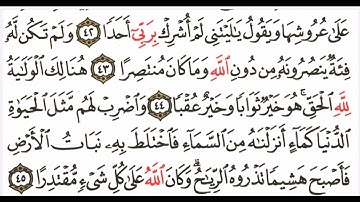 عَلَىٰ عُرُوشِهَا وَيَقُولُ يَـٰلَيْتَنِى لَمْ أُشْرِكْ بِرَبِّىٓ أَحَدًا ٤٢ وَلَمْ تَكُن لَّهُۥ
فِئَةٌ يَنصُرُونَهُۥ مِن دُونِ ٱللَّهِ وَمَا كَانَ مُنتَصِرًا ٤٣ هُنَالِكَ ٱلْوَلَـٰيَةُ
لِلَّهِ ٱلْحَقِّ ۚ هُوَ خَيْرٌ ثَوَابًا وَخَيْرٌ عُقْبًا ٤٤ وَٱضْرِبْ لَهُم مَّثَلَ ٱلْحَيَوٰةِ
ٱلدُّنْيَا كَمَآءٍ أَنزَلْنَـٰهُ مِنَ ٱلسَّمَآءِ فَٱخْتَلَطَ بِهِۦ نَبَاتُ ٱلْأَرْضِ
فَأَصْبَحَ هَشِيمًا تَذْرُوهُ ٱلرِّيَـٰحُ ۗ وَكَانَ ٱللَّهُ عَلَىٰ كُلِّ شَىْءٍ مُّقْتَدِرًا ٤٥